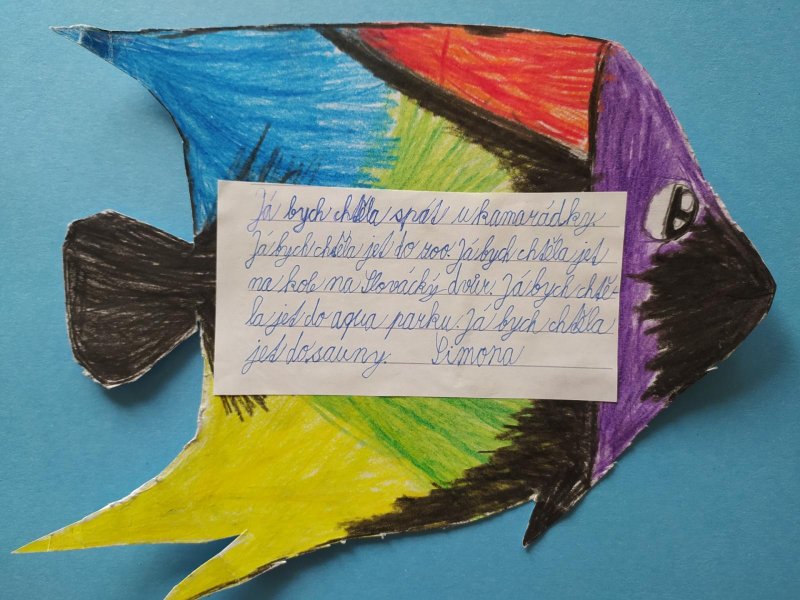 Já bych chtěla spát u kamarádky.
Já bych chtěla jet do zoo. Já bych chtěla jet
na kole na Slovácký dvůr. Já bych chtě-
la jet do aqua parku. Já bych chtěla
jet do sauny. Simona